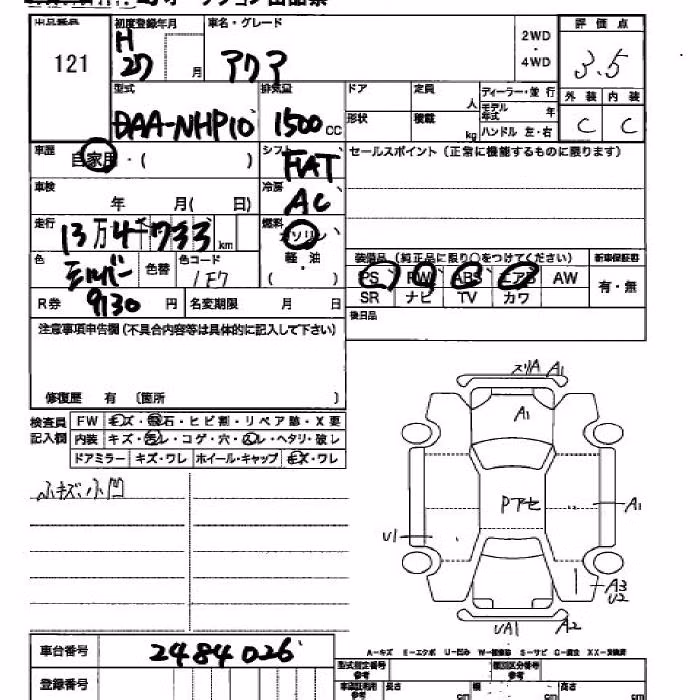 121
初度登録年月
H
27 月
車名・グレード
アクア
2WD
・
4WD
評価点
3.5
外装 内装
C C
型式
DAA-NHP10
排気量
1500 CC
ドア 定員 人
形状 積載 kg
ディーラー・並行
モデル年式 年
ハンドル 左・右
車歴
自家用・( )
シフト
FIAT
セールスポイント(正常に機能するものに限ります)
車検
年 月( 日)
冷房
AC
走行
13万4千733 km
燃料
ガソリン
軽・油
( )
色
シルバー
色替
色コード
1F7
装備品(純正品に限り○をつけてください)
PS PW ABS エアB AW
SR ナビ TV カワ
新車保証書
有・無
R券 9130 円
名変期限 月 日
後日品
注意事項申告欄(不具合内容等は具体的に記入して下さい)
修復歴 有 〔箇所 〕
検査員
記入欄
FW キズ・飛石・ヒビ割・リペア跡・X要
内装 キズ・汚レ・コゲ・穴・スレ・ヘタリ・破レ
ドアミラー キズ・ワレ ホイール・キャップ キズ・ワレ
小キズ、小凹
スリA A1
A1
Pアセ
A1
U1
A3
U2
UA1 A2
A-キズ E-エクボ U-凹み W-補修跡 S-サビ C-腐食 XX-交換済
車台番号 2484026
登録番号
型式指定番号
類別区分番号
長さ cm 幅 cm 高さ cm